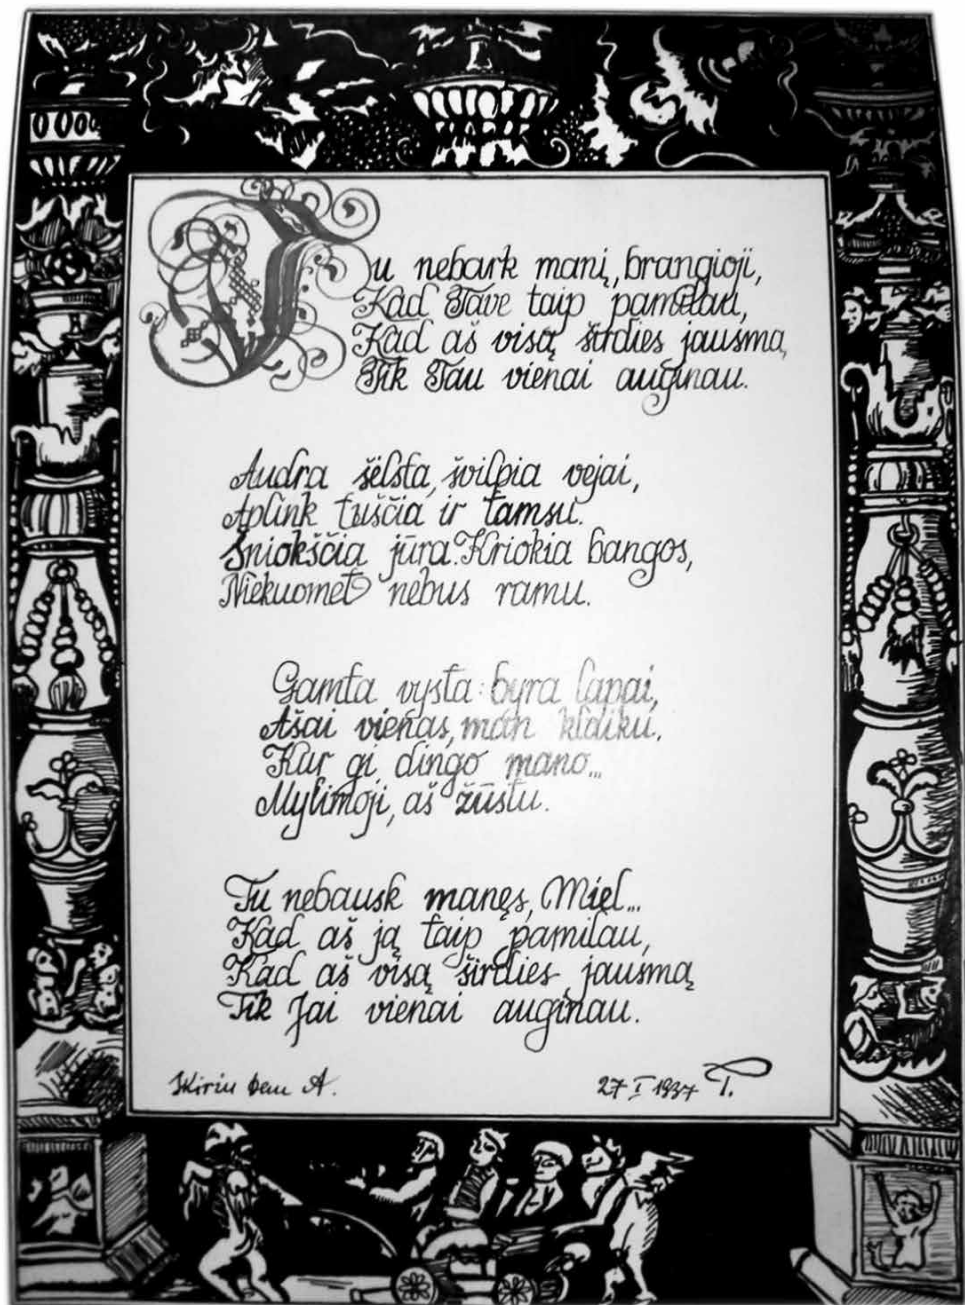 Tu nebark manį, brangioji,
Kad Tave taip pamilau,
Kad aš visą širdies jausmą,
Tik Tau vienai auginau.
Audra šėlsta, švilpia vejai,
Aplink tuščia ir tamsu.
Šniokščia jūra. Kriokia bangos,
Niekuomet nebus ramu.
Gamta vysta: byra lapai,
Ašai vienas, man klaiku.
Kur gi dingo mano...
Mylimoji, aš žūstu.
Tu nebausk manęs, Miel...
Kad aš ją taip pamilau,
Kad aš visą širdies jausmą
Tik Jai vienai auginau.
Skiriu A.
27 I 1937 P.